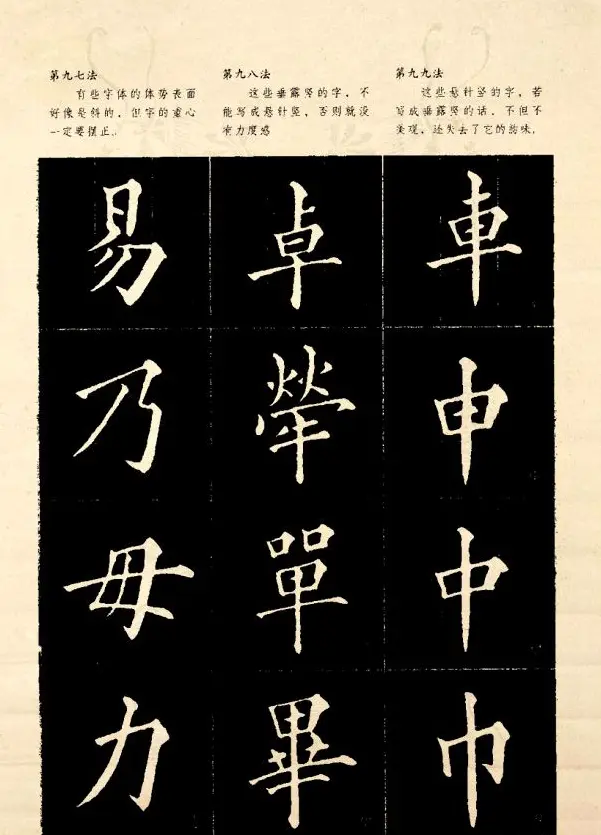 第九七法
有些字体的体势表面
好像是斜的,但字的重心
一定要摆正。
第九八法
这些垂露竖的字,不
能写成悬针竖,否则就没
有力度感
第九九法
这些悬针竖的字,若
写成垂露竖的话,不但不
美观,还失去了它的韵味。
易
乃
毋
力
卓
犖
單
畢
車
申
中
巾